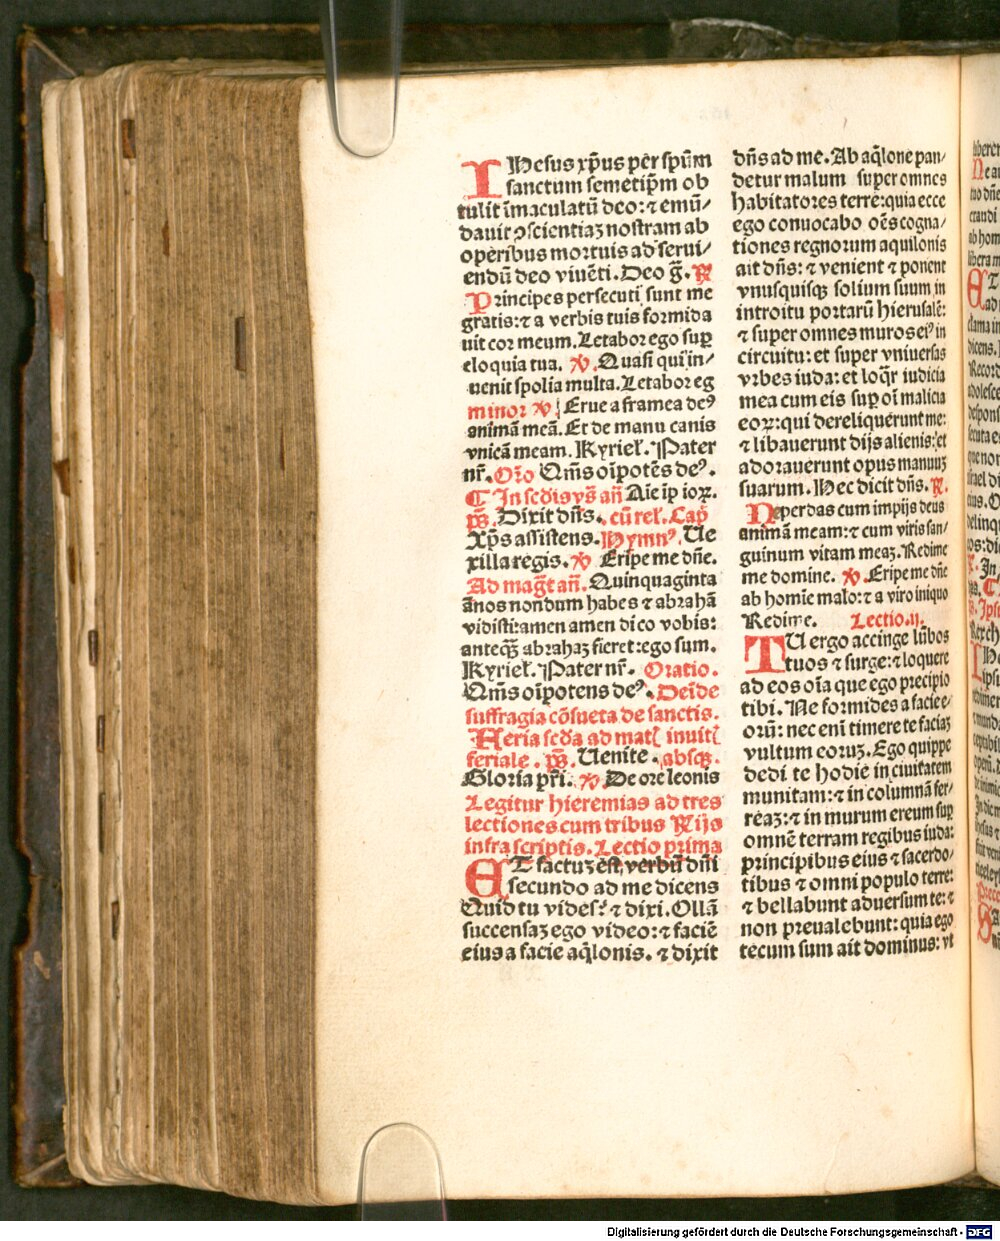 IHesus xp̄us per sp̄um
sanctum semetip̄m ob
tulit īmaculatū deo: ⁊ emū/
dauit ꝯscientiaꝫ nostram ab
operibus mortuis ad serui/
endū deo viuēti. Deo g̃. R̃
Principes persecuti sunt me
gratis: ⁊ a verbis tuis formida
uit cor meum. Letabor ego suꝑ
eloquia tua. ℣. Quasi qui in/
uenit spolia multa. Letabor eg
minor ℣ Erue a framea de⁹
animā meā. Et de manu canis
vnicā meam. Kyriel̃. Pater
nr̄. Or̄o Om̄s oīpotēs de⁹.
¶ In scd̄is vs̄ an̄ Aīe īp ioꝝ.
ps̄. Dixit dn̄s. cū rel̃. Cap̄
Xp̄s assistens. Hymn⁹. Ue
xilla regis. ℣ Eripe me dn̄e.
Ad mag̃t an̄. Quinquaginta
ānos nondum habes ⁊ abrahā
vidisti: amen amen dico vobis:
anteqꝫ̄ abrahaꝫ fieret: ego sum.
Kyriel̃. Pater nr̄. Oratio.
Om̄s oīpotens de⁹. Deīde
suffragia cōsueta de sanctis.
Feria scd̄a ad mat̃ inuit̃
feriale. ps̄. Uenite. absqꝫ.
Gloria pr̄i. ℣ De ore leonis
Legitur hieremias ad tres
lectiones cum tribus R̃ijs
infra scriptis. Lectio prima
ET factuꝫ est verbū dn̄i
secundo ad me dicens
Quid tu vides? ⁊ dixi. Ollā
succensaꝫ ego video: ⁊ faciē
eius a facie aq̄lonis. ⁊ dixit
dn̄s ad me. Ab aq̄lone pan/
detur malum super omnes
habitatores terre: quia ecce
ego conuocabo oēs cogna/
tiones regnorum aquilonis
ait dn̄s: ⁊ venient ⁊ ponent
vnusquisqꝫ solium suum in
introitu portarū hierusalē:
⁊ super omnes muros ei⁹ in
circuitu: et super vniuersas
vrbes iuda: et loq̄r iudicia
mea cum eis suꝑ oī malicia
eoꝝ: qui dereliquerunt me:
⁊ libauerunt dijs alienis: et
adorauerunt opus manuuꝫ
suarum. Hec dicit dn̄s. R̃.
Ne perdas cum impijs deus
animā meam: ⁊ cum viris san/
guinum vitam meaꝫ. Redime
me domine. ℣. Eripe me dn̄e
ab homīe malo: ⁊ a viro iniquo
Redime. Lectio .ij.
TU ergo accinge lūbos
tuos ⁊ surge: ⁊ loquere
ad eos oīa que ego precipio
tibi. Ne formides a facie e-
orū: nec eni timere te faciaꝫ
vultum eoruꝫ. Ego quippe
dedi te hodie in ciuitatem
munitam: ⁊ in columnā fer-
reaꝫ: ⁊ in murum ereum suꝑ
omnē terram regibus iuda:
principibus eius ⁊ sacerdo/
tibus ⁊ omni populo terre:
⁊ bellabunt aduersum te: ⁊
non preualebunt: quia ego
tecum sum ait dominus: vt
Digitalisierung gefördert durch die Deutsche Forschungsgemeinschaft - DFG